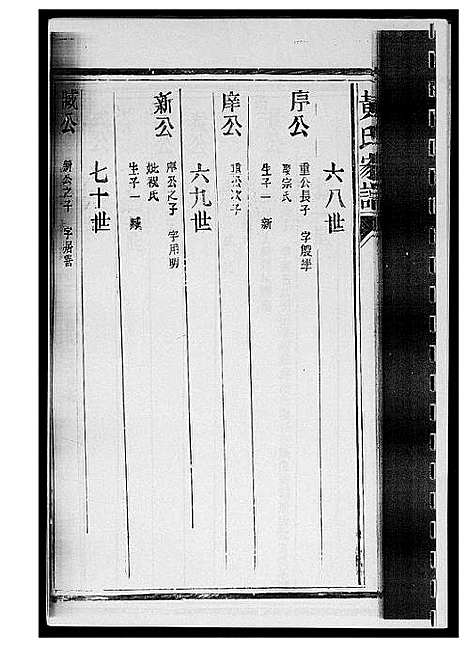 黃氏家譜
六八世
序公
重公長子 字殷學
娶宗氏
生子一 新
庠公
重公次子
六九世
新公
庠公之子 字用明
妣祝氏
生子一 臧
七十世
臧公
新公之子 字居善